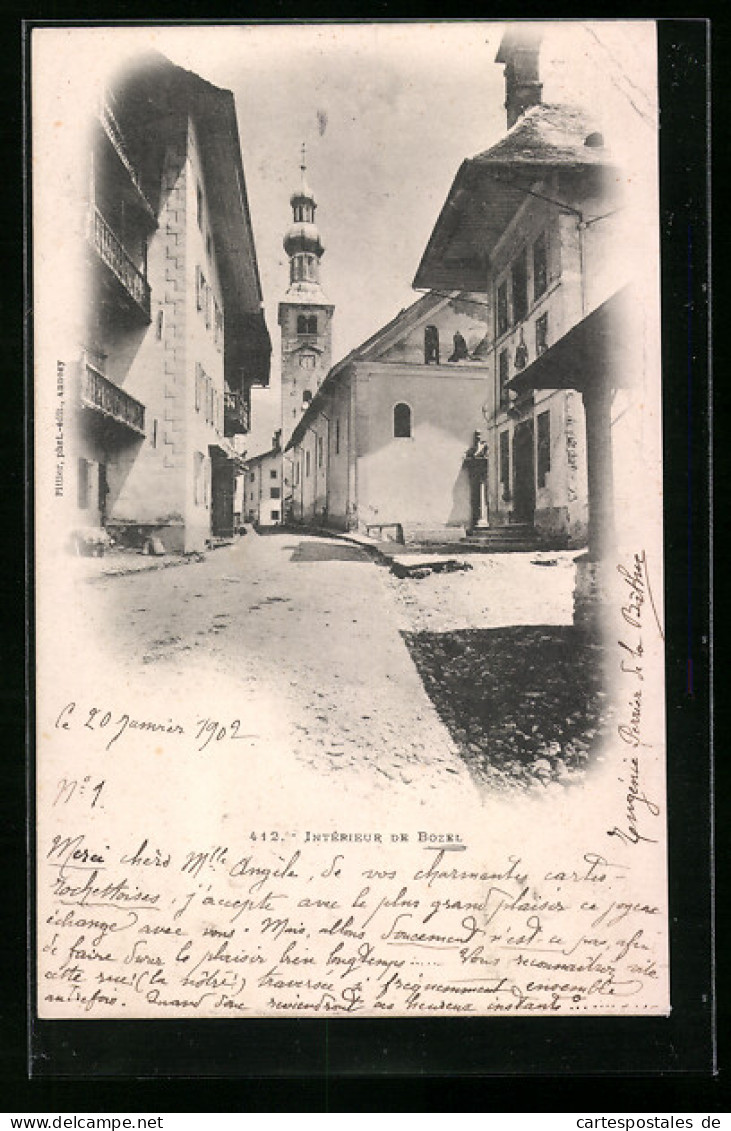 Pittier, phot.-édit., Annecy
Le 20 Janvier 1902
N° 1.
412. - INTÉRIEUR DE BOZEL
Merci chère Mlle Angèle, de vos charmantes cartes-
rochettoises, j'accepte avec le plus grand plaisir ce joyeux
échange avec vous. Mais, allons doucement n'est-ce pas, afin
de faire durer le plaisir bien longtemps...... Vous reconnaîtrez vite
cette rue! (la nôtre!) traversée si fréquemment ensemble
autrefois. Quand donc reviendront ces heureux instants?.........
Eugénie Perrier de la Bâthie
cartespostales de